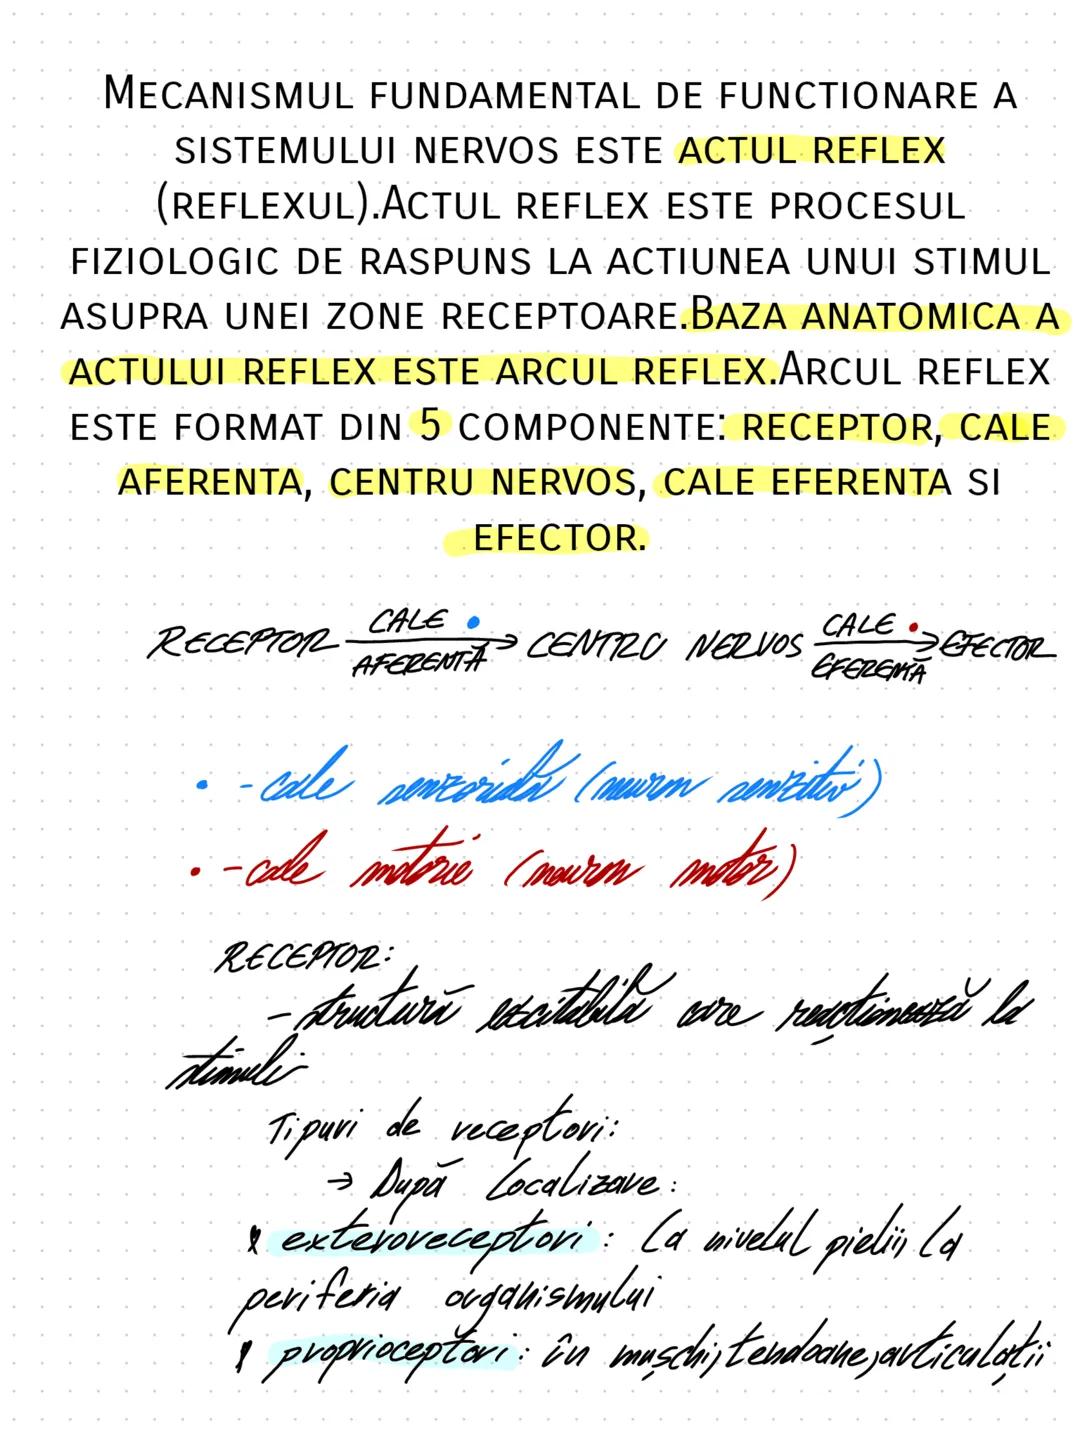 MECANISMUL FUNDAMENTAL DE FUNCTIONARE A
SISTEMULUI NERVOS ESTE ACTUL REFLEX
(REFLEXUL).ACTUL REFLEX ESTE PROCESUL
FIZIOLOGIC DE RASPUNS LA ACTIUNEA UNUI STIMUL
ASUPRA UNEI ZONE RECEPTOARE.BAZA ANATOMICA A
ACTULUI REFLEX ESTE ARCUL REFLEX.ARCUL REFLEX
ESTE FORMAT DIN 5 COMPONENTE: RECEPTOR, CALE
AFERENTA, CENTRU NERVOS, CALE EFERENTA SI
EFECTOR.
RECEPTOR CALE AFERENTĂ → CENTRU NERVOS CALE EFERENTĂ → EFECTOR
• - cale senzorială (neuron senzitiv)
• - cale motorie (neuron motor)
RECEPTOR:
- structură excitabilă care reacționează la
stimuli
Tipuri de receptori:
→ După localizare:
exteroreceptori: la nivelul pielii, la
periferia organismului
proprioceptori: în mușchi, tendoane, articulații